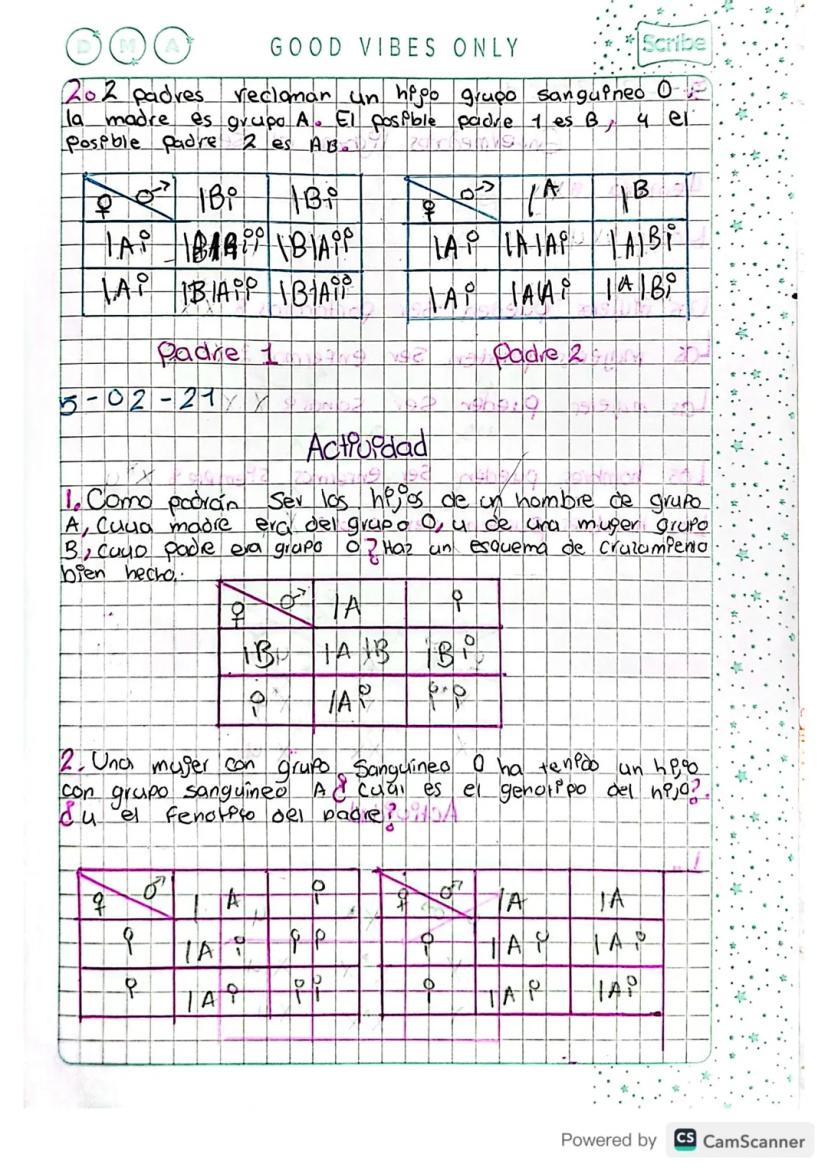 D M A GOOD VIBES ONLY Scribe
2. 2 padres reclaman un hijo grupo sanguineo O.
la madre es grupo A. El posible padre 1 es B, y el
posible padre 2 es AB.
♀ ♂ IBi IBi
IAi IBIAii
IAi IBIAii IBIAii
♀ ♂ IA IB
IAi IAIAi IAIBi
IAi IAIAi IAIBi
Padre 1 Padre 2
5-02-21
Actividad
1. Como podrán ser los hijos de un hombre de grupo
A, cuya madre era del grupo O, y de una mujer grupo
B, cuyo padre era grupo O? Haz un esquema de cruzamiento
bien hecho.
♀ ♂ IA i
IB IA IB IB i
i IA i i i
2. Una mujer con grupo sanguineo O ha tenido un hijo
con grupo sanguineo A ¿ cuál es el genotipo del hijo?
¿ y el fenotipo del padre?
♀ ♂ I A i
i IA i i i
i IA i i i
♀ ♂ IA IA
i IA i IA i
i IA i IAi
Powered by CS CamScanner